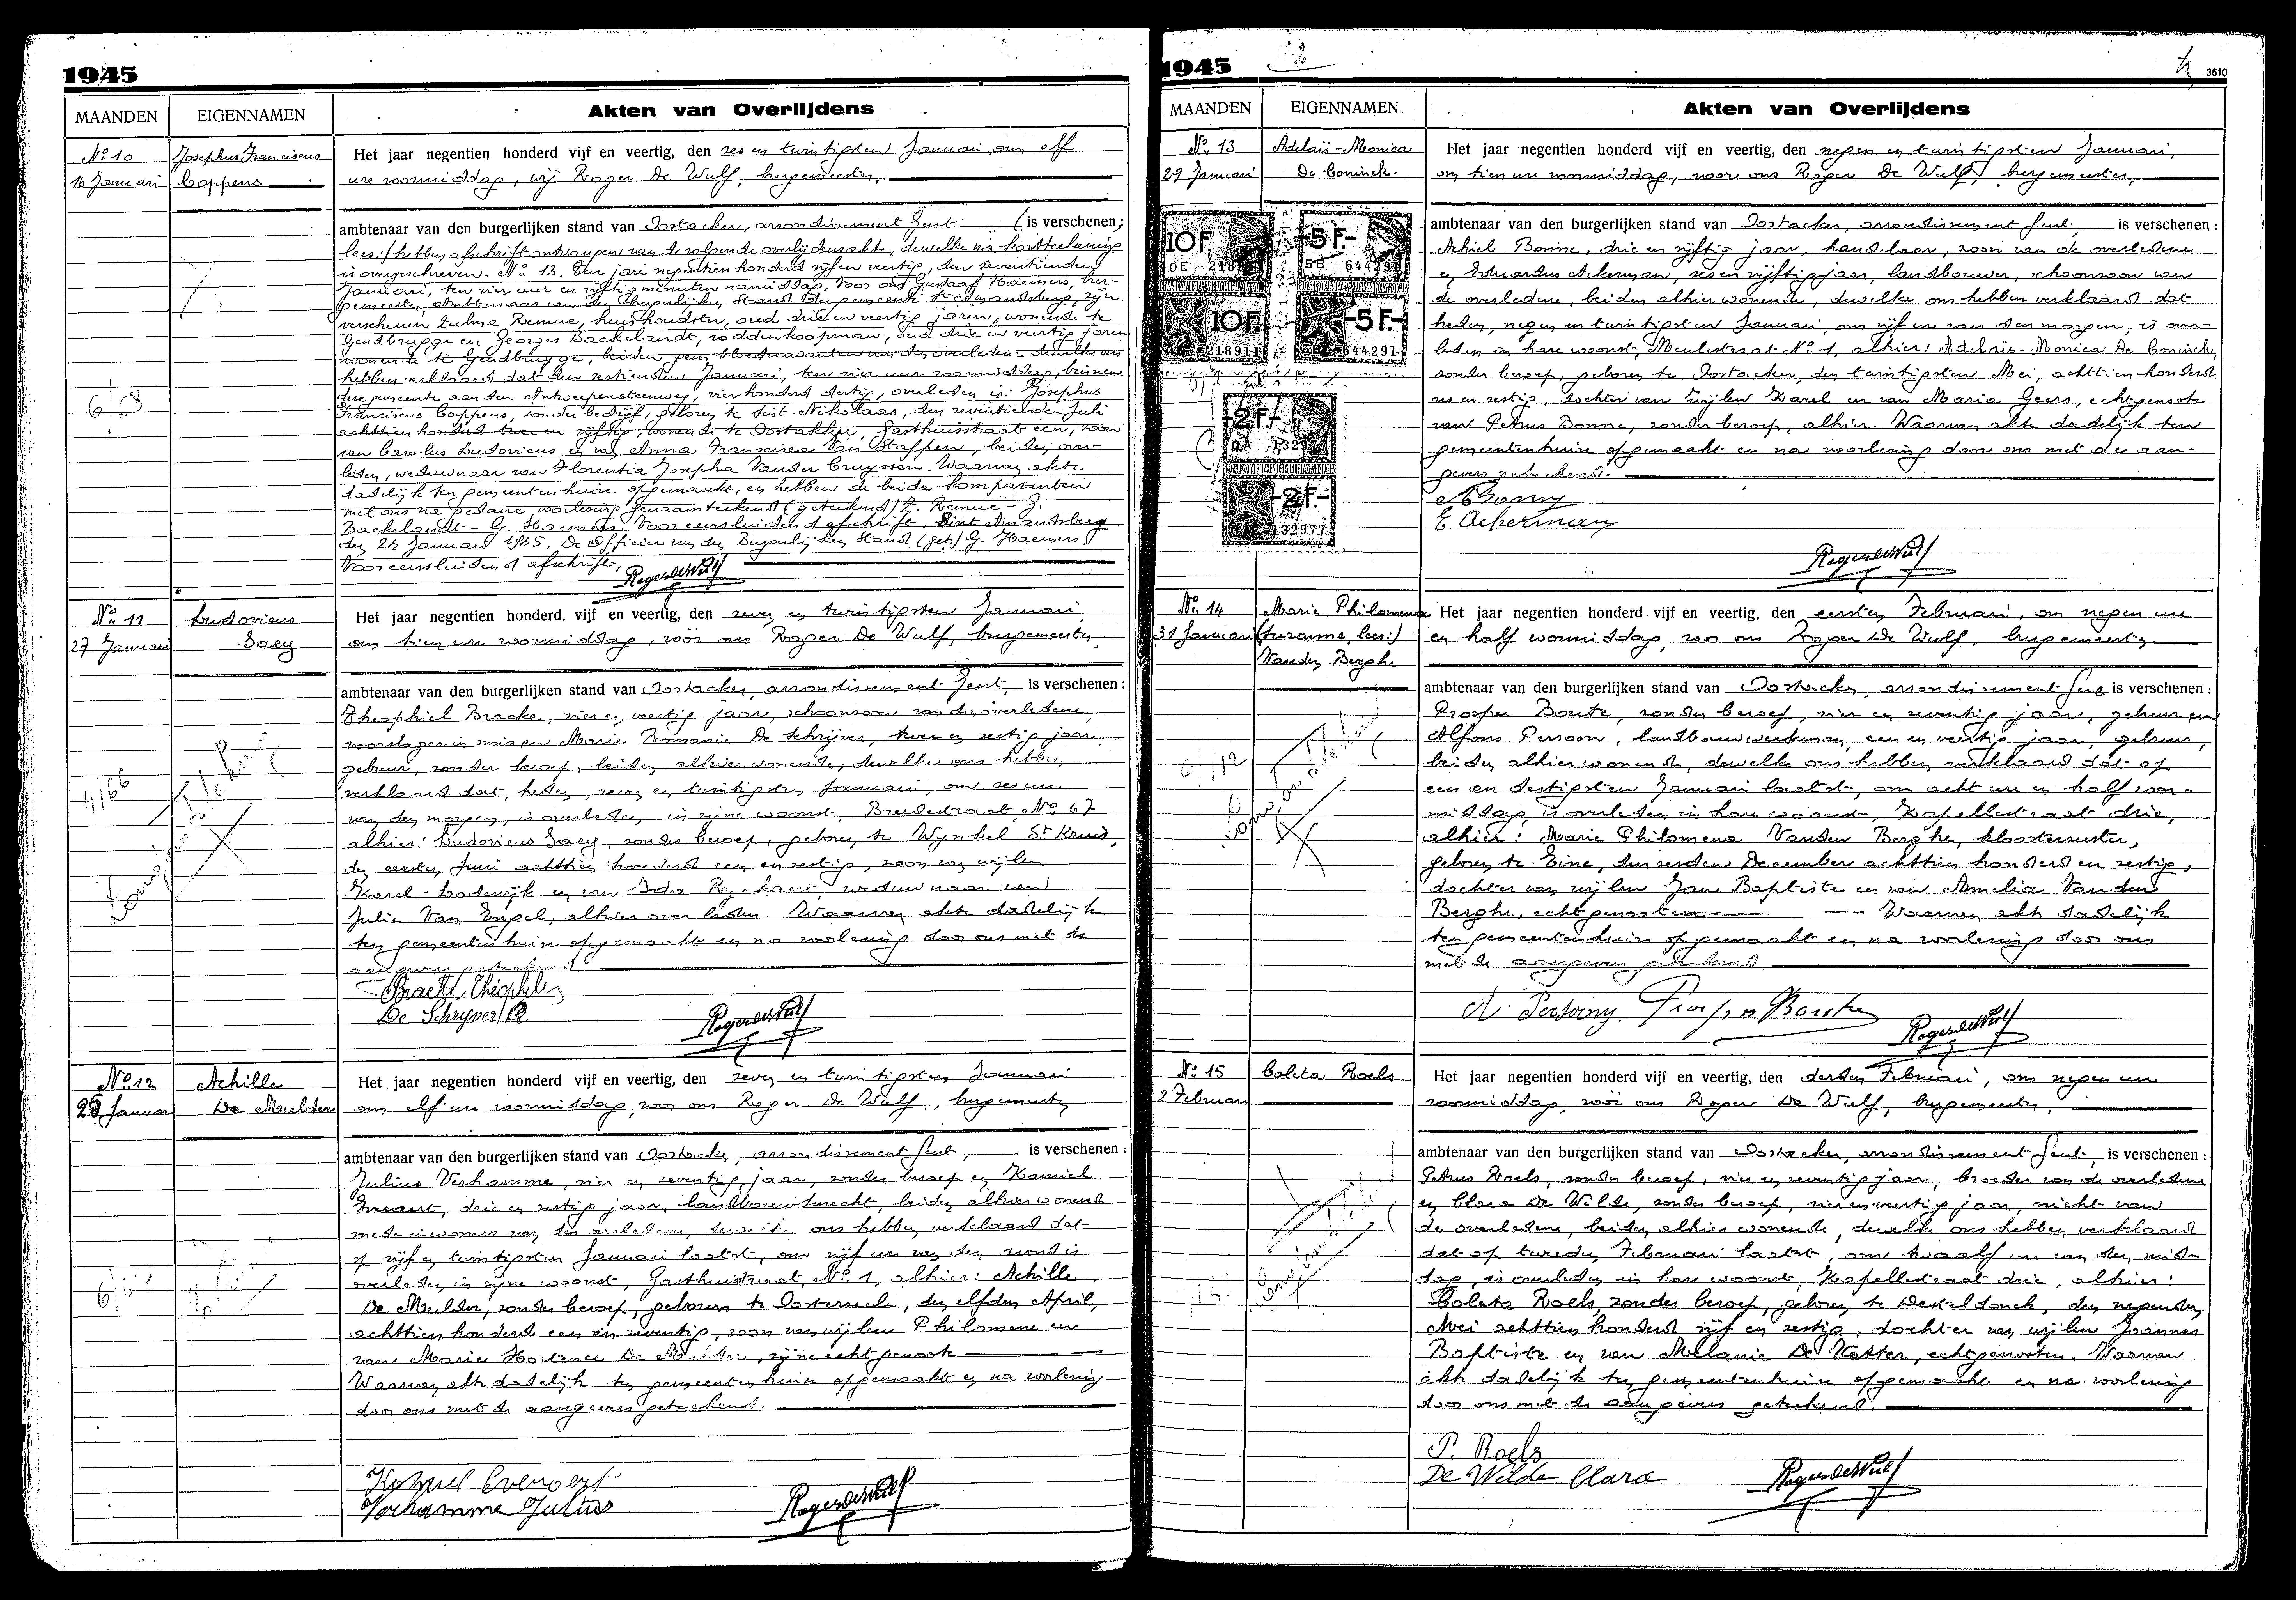 1945
MAANDEN EIGENNAMEN Akten van Overlijdens
No 10
16 Januari
Josephus Franciscus
Coppens
Het jaar negentien honderd vijf en veertig, den zes en twintigsten Januari, om elf
ure voormiddag, wij Roger De Wulf, burgemeester,
ambtenaar van den burgerlijken stand van Oostacker, arrondissement Gent (is verschenen;
lees:) hebben afschrift ontvangen van de volgende overlijdensakte, dewelke na kantteekening
is overgeschreven. No 13. Ten jare negentien honderd vijf en veertig, den zeventienden
Januari, ten vier uur en vijftig minuten namiddag, voor ons Gustaaf Haemers, bur-
gemeester, Ambtenaar van den Burgerlijken Stand der gemeente St Amandsberg, zijn
verschenen Zulma Remue, huishoudster, oud drie en veertig jaren, wonende te
Gendbrugge en Georges Backelandt, voddenkoopman, oud drie en veertig jaren
wonende te Gendbrugge, beiden geen bloedverwanten van den overleden - dewelke ons
hebben verklaard dat den zestienden Januari, ten vier uur voormiddag, binnen
deze gemeente aan den Antwerpensteenweg, vier honderd dertig, overleden is: Josephus
Franciscus Coppens, zonder bedrijf, geboren te Sint-Nikolaas, den zeventienden Juli
achttien honderd twee en vijftig, wonende te Oostakker, Gasthuisstraat een, zoon
van Carolus Ludovicus en van Anna Francisca Van Stappen, beiden over-
leden, weduwnaar van Florentia Josepha Vander Cruyssen. Waarvan akte
dadelijk ten gemeentenhuize opgemaakt, en hebben de beide komparanten
met ons na gedane voorlezing genaamteekend (geteekend) Z. Remue - G.
Backelandt - G. Haemers. Voor eensluidend afschrift, Sint Amandsberg
den 24 Januari 1945. De Officier van den Burgerlijken Stand (get.) G. Haemers.
Voor eensluidend afschrift,
Roger De Wulf
No 11
27 Januari
Ludovicus
Saey
Het jaar negentien honderd vijf en veertig, den zeven en twintigsten Januari,
om tien ure voormiddag, vóór ons Roger De Wulf, burgemeester,
ambtenaar van den burgerlijken stand van Oostacker, arrondissement Gent, is verschenen:
Theophiel Bracke, vier en veertig jaar, schoonzoon van den overledene,
en Marie Romanie De Schrijver, twee en zestig jaar,
gebuur, zonder beroep, beiden alhier wonende, dewelke ons hebben
verklaard dat, heden, zeven en twintigsten Januari, om zes ure
van den morgen, is overleden in zijne woonst, Breedestraat, No 67
alhier: Ludovicus Saey, zonder beroep, geboren te Wynkel St Kruis,
den eersten Juni achttien honderd een en zestig, zoon van wijlen
Karel-Lodewijk en van Ida Ryckaert, weduwnaar van
Julie Van Engel, alhier overleden. Waarvan akte dadelijk
ten gemeentenhuize opgemaakt en na voorlezing door ons met de
aangevers geteekend
Bracke Théophile
De Schryver R
Roger De Wulf
No 12
25 Januari
Achille
De Mulder
Het jaar negentien honderd vijf en veertig, den zeven en twintigsten Januari
om elf ure voormiddag, voor ons Roger De Wulf, burgemeester,
ambtenaar van den burgerlijken stand van Oostacker, arrondissement Gent, is verschenen:
Julius Verhamme, vier en zeventig jaar, zonder beroep en Kamiel
Everaert, drie en zestig jaar, landbouwersknecht, beiden alhier wonende
mede inwoners van den overledene, dewelke ons hebben verklaard dat
op vijf en twintigsten Januari laatst, om vijf ure van den avond is
overleden in zijne woonst, Gasthuisstraat, No 1, alhier: Achille
De Mulder, zonder beroep, geboren te Oosterzeele, den elfden April,
achttien honderd een en zeventig, zoon van wijlen Philomene en
van Marie Hortence De Mulder, zijne echtgenoote
Waarvan akte dadelijk ten gemeentenhuize opgemaakt en na voorlezing
door ons met de aangevers geteekend.
Kamiel Everaert
Verhamme Julius
Roger De Wulf
1945
3610
MAANDEN EIGENNAMEN. Akten van Overlijdens
No 13
29 Januari
Adelaïs-Monica
De Coninck.
Het jaar negentien honderd vijf en veertig, den negen en twintigsten Januari,
om tien ure voormiddag, voor ons Roger De Wulf, burgemeester,
ambtenaar van den burgerlijken stand van Oostacker, arrondissement Gent, is verschenen:
Achiel Bonne, drie en vijftig jaar, handelaar, zoon van de overledene
en Eduardus Ackerman, zes en vijftig jaar, landbouwer, schoonzoon van
de overledene, beiden alhier wonende, dewelke ons hebben verklaard dat
heden, negen en twintigsten Januari, om vijf ure van den morgen, is over-
leden in hare woonst, Meulestraat No 1, alhier: Adelaïs-Monica De Coninck,
zonder beroep, geboren te Oostacker, den twintigsten Mei, achttien honderd
zes en zestig, dochter van wijlen Karel en van Maria Geers, echtgenoote
van Petrus Bonne, zonder beroep, alhier. Waarvan akte dadelijk ten
gemeentenhuize opgemaakt en na voorlezing door ons met de aan-
gevers geteekend.
A Bonny
E Ackerman
Roger De Wulf
10 F.
-5 F.-
644291
10 F.
-5 F.-
218911
644291
-2 F.-
-2 F.-
132977
No 14
31 Januari
Marie Philomena
(Suzanne, lees:)
Vanden Berghe
Het jaar negentien honderd vijf en veertig, den eersten Februari, om negen ure
en half voormiddag, voor ons Roger De Wulf, burgemeester,
ambtenaar van den burgerlijken stand van Oostacker, arrondissement Gent is verschenen:
Prosper Boute, zonder beroep, vier en zeventig jaar, gebuur en
Alfons Persoon, landbouwwerkman, een en veertig jaar, gebuur,
beiden alhier wonende, dewelke ons hebben verklaard dat op
een en dertigsten Januari laatst, om acht ure en half voor-
middag, is overleden in hare woonst, Kapellestraat drie,
alhier: Marie Philomena Vanden Berghe, kloosterzuster,
geboren te Eine, den zesden December achttien honderd en zestig,
dochter van wijlen Jan Baptiste en van Amelia Vanden
Berghe, echtgenooten Waarvan akte dadelijk
ten gemeentenhuize opgemaakt en na voorlezing door ons
met de aangevers geteekend
A. Persoony. Prosper Boute
Roger De Wulf
No 15
2 Februari
Coleta Roels
Het jaar negentien honderd vijf en veertig, den derden Februari, om negen ure
voormiddag, vóór ons Roger De Wulf, burgemeester,
ambtenaar van den burgerlijken stand van Oostacker, arrondissement Gent, is verschenen:
Petrus Roels, zonder beroep, vier en zeventig jaar, broeder van de overledene
en Clara De Wilde, zonder beroep, vier en veertig jaar, nicht van
de overledene, beiden alhier wonende, dewelke ons hebben verklaard
dat op tweeden Februari laatst, om twaalf ure van den mid-
dag, is overleden in hare woonst, Kapellestraat drie, alhier:
Coleta Roels, zonder beroep, geboren te Desteldonck, den negenden
Mei achttien honderd vijf en zestig, dochter van wijlen Joannes
Baptiste en van Melanie De Vetter, echtgenooten. Waarvan
akte dadelijk ten gemeentenhuize opgemaakt en na voorlezing
door ons met de aangevers geteekend.
P. Roels
De Wilde Clara
Roger De Wulf